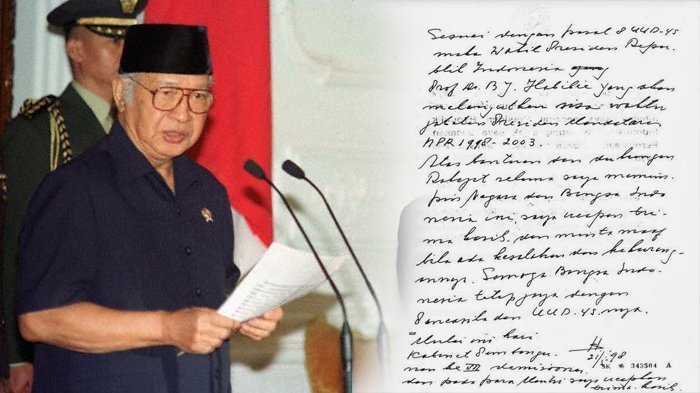 Sesuai dengan pasal 8 UUD-45
maka Wakil Presiden Repu
blik Indonesia yang
Prof. Dr. B.J. Habibie yang akan
melanjutkan sisa waktu
jabatan Presiden Mandataris
MPR 1998-2003.
Atas bantuan dan dukungan
Rakyat selama saya memim-
pin Negara dan Bangsa Indo
nesia ini, saya ucapkan teri
ma kasih, dan minta maaf
bila ada kesalahan dan kekurang-
annya. Semoga Bangsa Indo-
nesia tetap jaya dengan
Pancasila dan UUD-45.nya.
Mulai ini hari
Kabinet Pembangu-
nan ke VII demisioner
dan pada para Menteri saya ucapkan
terima kasih.
21/5-98
SK 343504 A